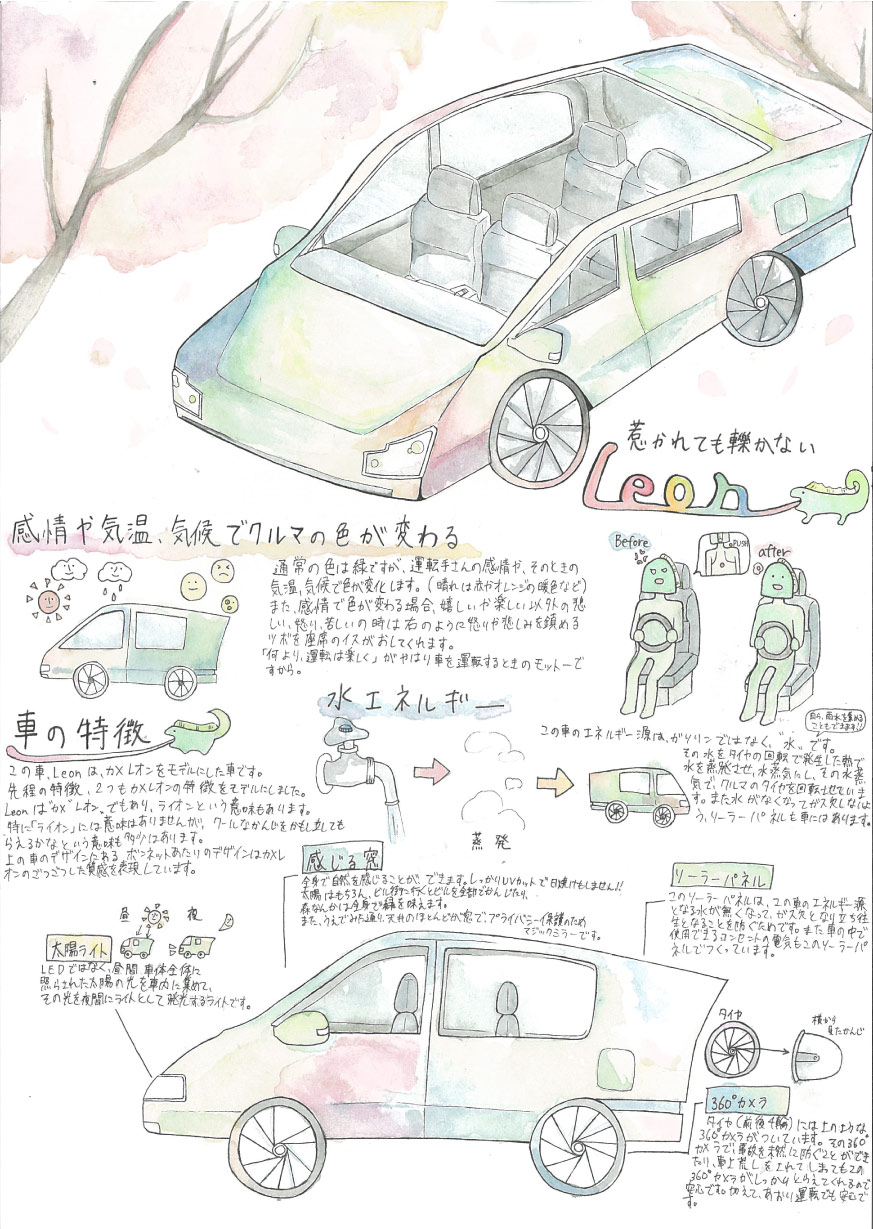 惹かれても轢かない
Leon
感情や気温、気候でクルマの色が変わる
通常の色は緑ですが、運転手さんの感情や、そのときの
気温、気候で色が変化します。(晴れは赤やオレンジの暖色など)
また、感情で色が変わる場合、嬉しいや楽しい以外の悲
しい、怒り、苦しいの時は右のように怒りや悲しみを鎮める
ツボを座席のイスがおしてくれます。
「何より、運転は楽しく」がやはり車を運転するときのモットーで
すから。
Before
PUSH
after
車の特徴
この車、Leonは、カメレオンをモデルにした車です。
先程の特徴、2つもカメレオンの特徴をモデルにしました。
Leonは"カメ"レオン、でもあり、ライオンという意味もあります。
特に「ライオン」には意味はありませんが、クールなかんじをかもし出しても
らえるかなという意味も多少はあります。
上の車のデザインにある、ボンネットあたりのデザインはカメレ
オンのごつごつした質感を表現しています。
水エネルギー
蒸発
自ら、雨水を集める
こともできます!!
この車のエネルギー源は、ガソリンではなく、"水"です。
その水をタイヤの回転で発生した熱で
水を蒸発させ、水蒸気にし、その水蒸
気で、クルマのタイヤを回転させていま
す。また水がなくなってガス欠しないよ
う、ソーラーパネルも車にはあります。
感じる窓
全身で自然を感じることが、できます。しっかりUVカットで日焼けもしません!!
太陽はもちろん、ビル街に行くとビルを全部でかんじたり、
森なんかは全身で緑を味えます。
また、うえでみた通り、天井のほとんどが窓で、プライバシー保護のため
マジックミラーです。
ソーラーパネル
このソーラーパネルは、この車のエネルギー源
となる水が無くなって、ガス欠となり立ち往
生となることを防ぐためです。また車の中で
使用できるコンセントの電気もこのソーラーパ
ネルでつくっています。
昼 夜
太陽ライト
LEDではなく、昼間車体全体に
照らされた太陽の光を車内に集めて、
その光を夜間にライトとして発光するライトです。
タイヤ
横から
見たかんじ
360°カメラ
タイヤ(前後4輪)には上のような
360°カメラがついています。その360°
カメラで、事故を未然に防ぐことができ
たり、車上荒しをされてしまってもこの
360°カメラがしっかりとらえてくれるので
安心です。加えて、あおり運転でも安心で
す。